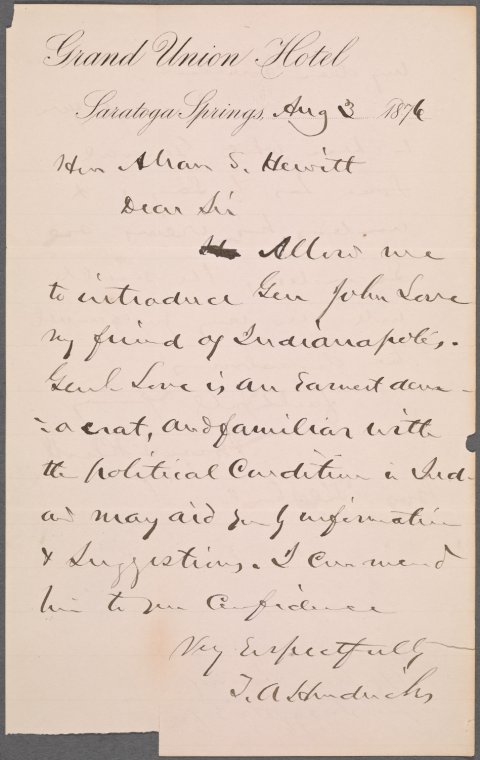 Grand Union Hotel
Saratoga Springs, Aug 3 1876
Hon Abram S. Hewitt
Dear Sir
Allow me
to introduce Gen John Love
my friend of Indianapolis.
Genl Love is an Earnest dem-
ocrat, and familiar with
the political Condition in Ind.
and may aid you by information
& Suggestions. I commend
him to your Confidence
Very Respectfully
T. A Hendricks